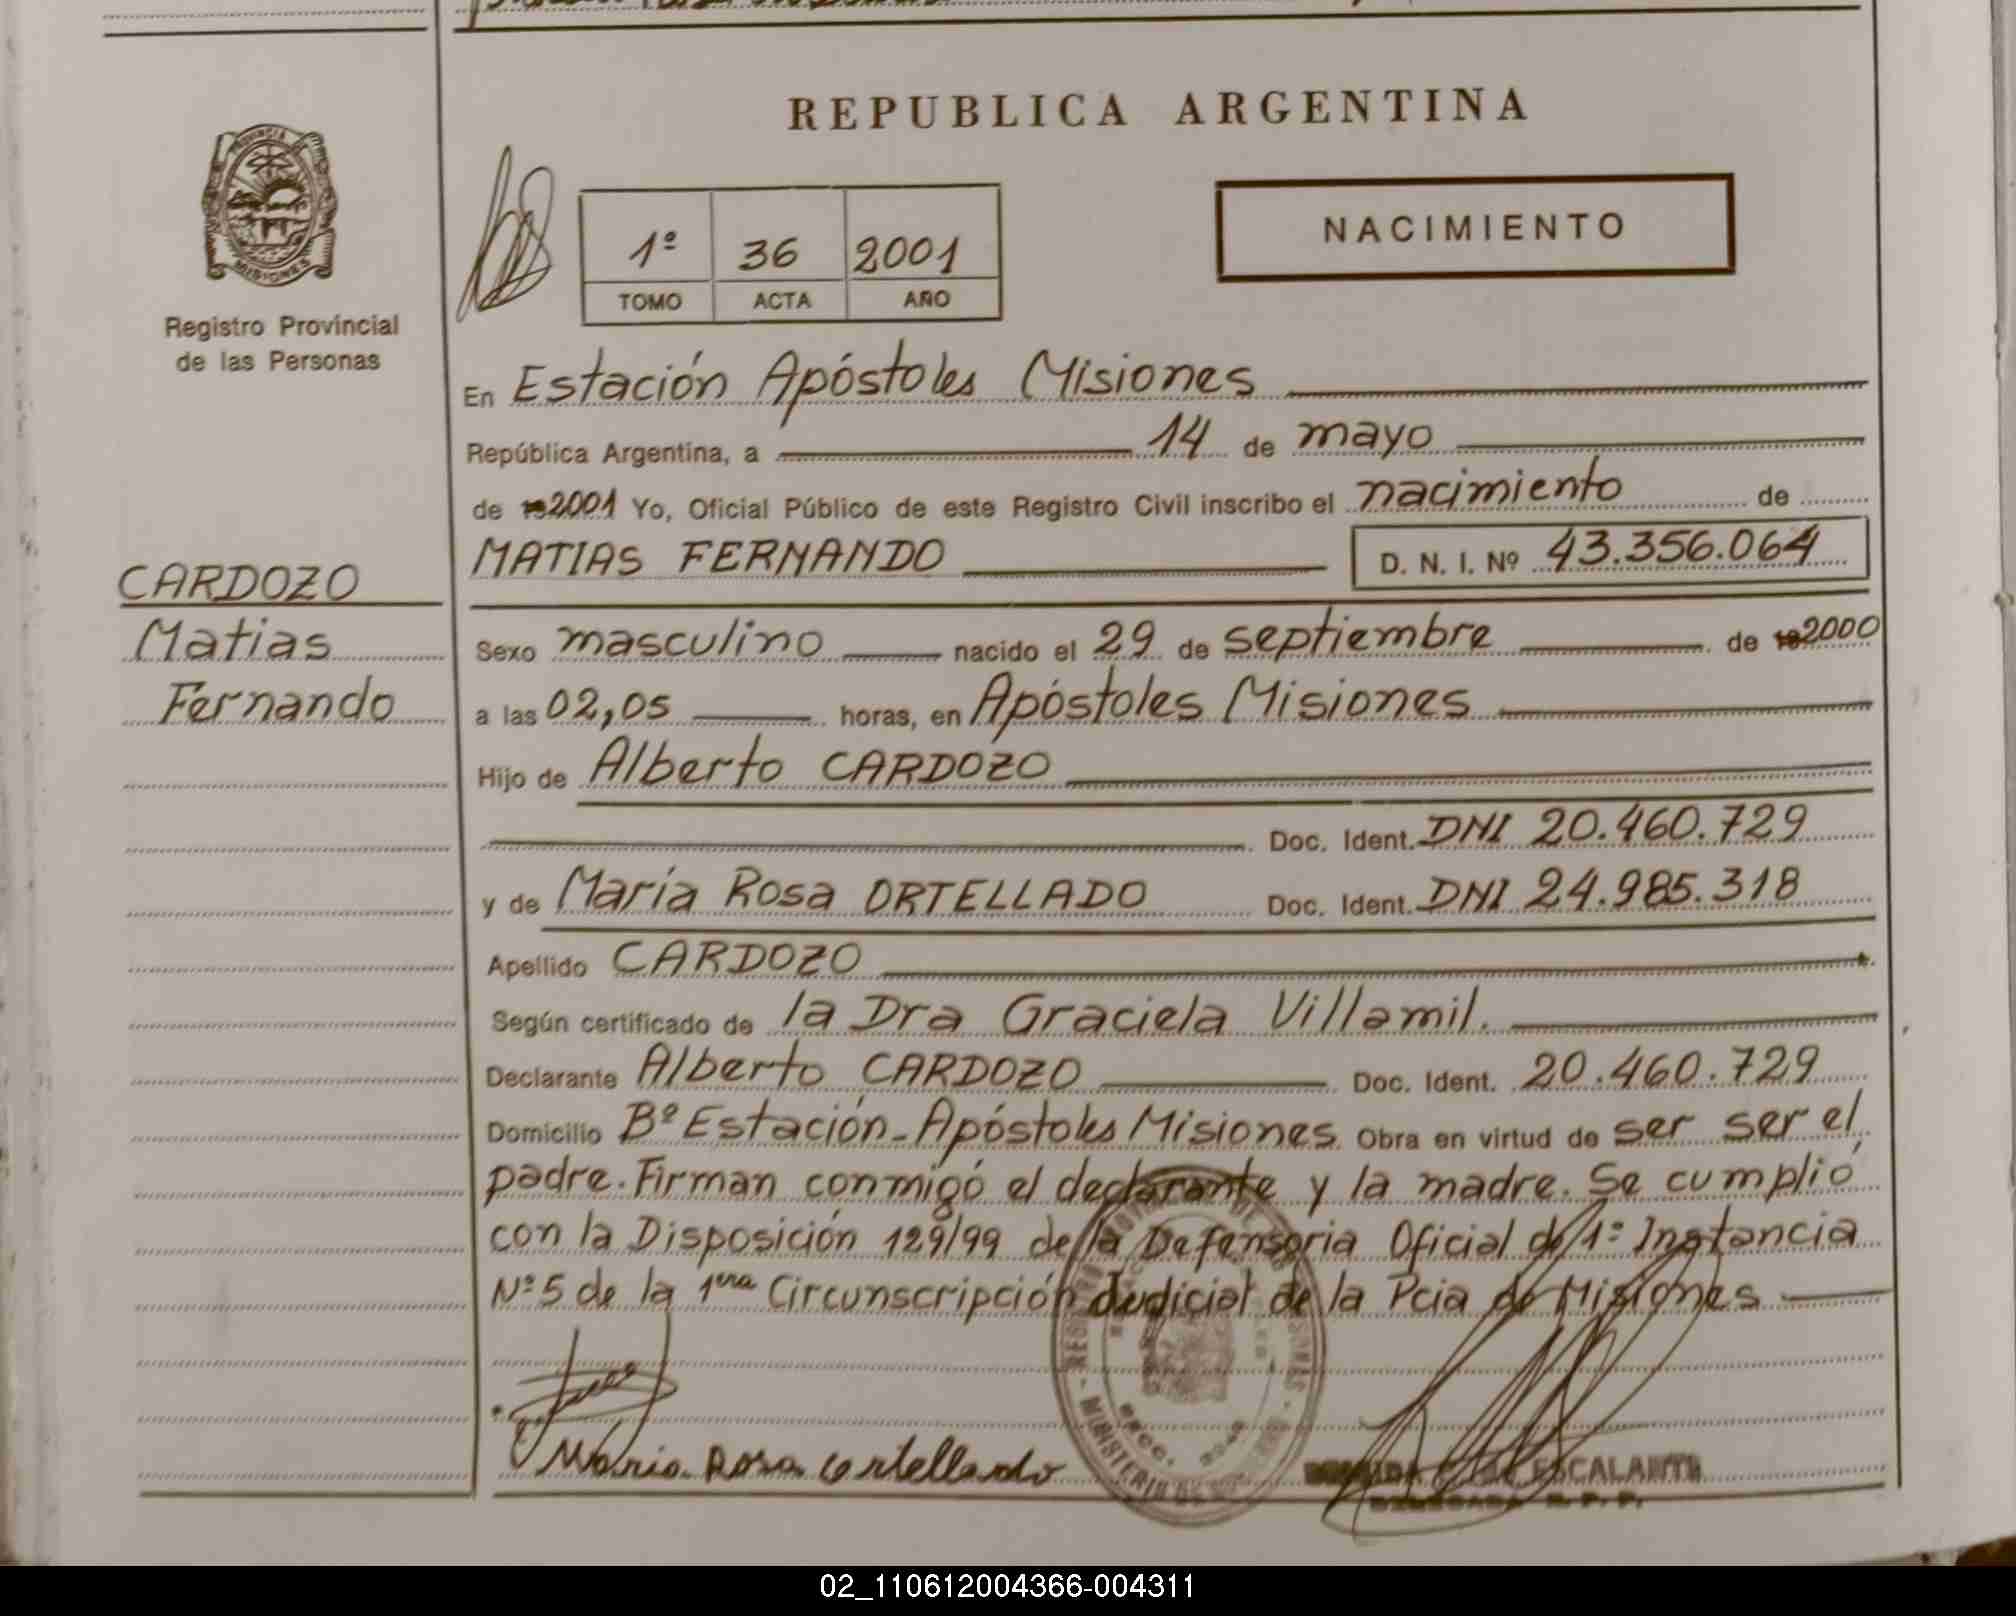 PROVINCIA DE
MISIONES
Registro Provincial
de las Personas
REPUBLICA ARGENTINA
NACIMIENTO
1º 36 2001
TOMO ACTA AÑO
En Estación Apóstoles Misiones
República Argentina, a 14 de mayo
de 19 2001 Yo, Oficial Público de este Registro Civil inscribo el nacimiento de
MATIAS FERNANDO D. N. I. Nº 43.356.064
CARDOZO
Matias
Fernando
Sexo masculino nacido el 29 de septiembre de 19 2000
a las 02,05 horas, en Apóstoles Misiones
Hijo de Alberto CARDOZO
Doc. Ident. DNI 20.460.729
y de María Rosa ORTELLADO Doc. Ident. DNI 24.985.318
Apellido CARDOZO
Según certificado de la Dra Graciela Villamil.
Declarante Alberto CARDOZO Doc. Ident. 20.460.729
Domicilio Bº Estación - Apóstoles Misiones Obra en virtud de ser ser el
padre. Firman conmigo el declarante y la madre. Se cumplió
con la Disposición 129/99 de la Defensoria Oficial de 1º Instancia
Nº 5 de la 1era Circunscripción Judicial de la Pcia de Misiones
Maria Rosa ortellado
ESCALANTE
DELEGADA R. P. P.
02_110612004366-004311